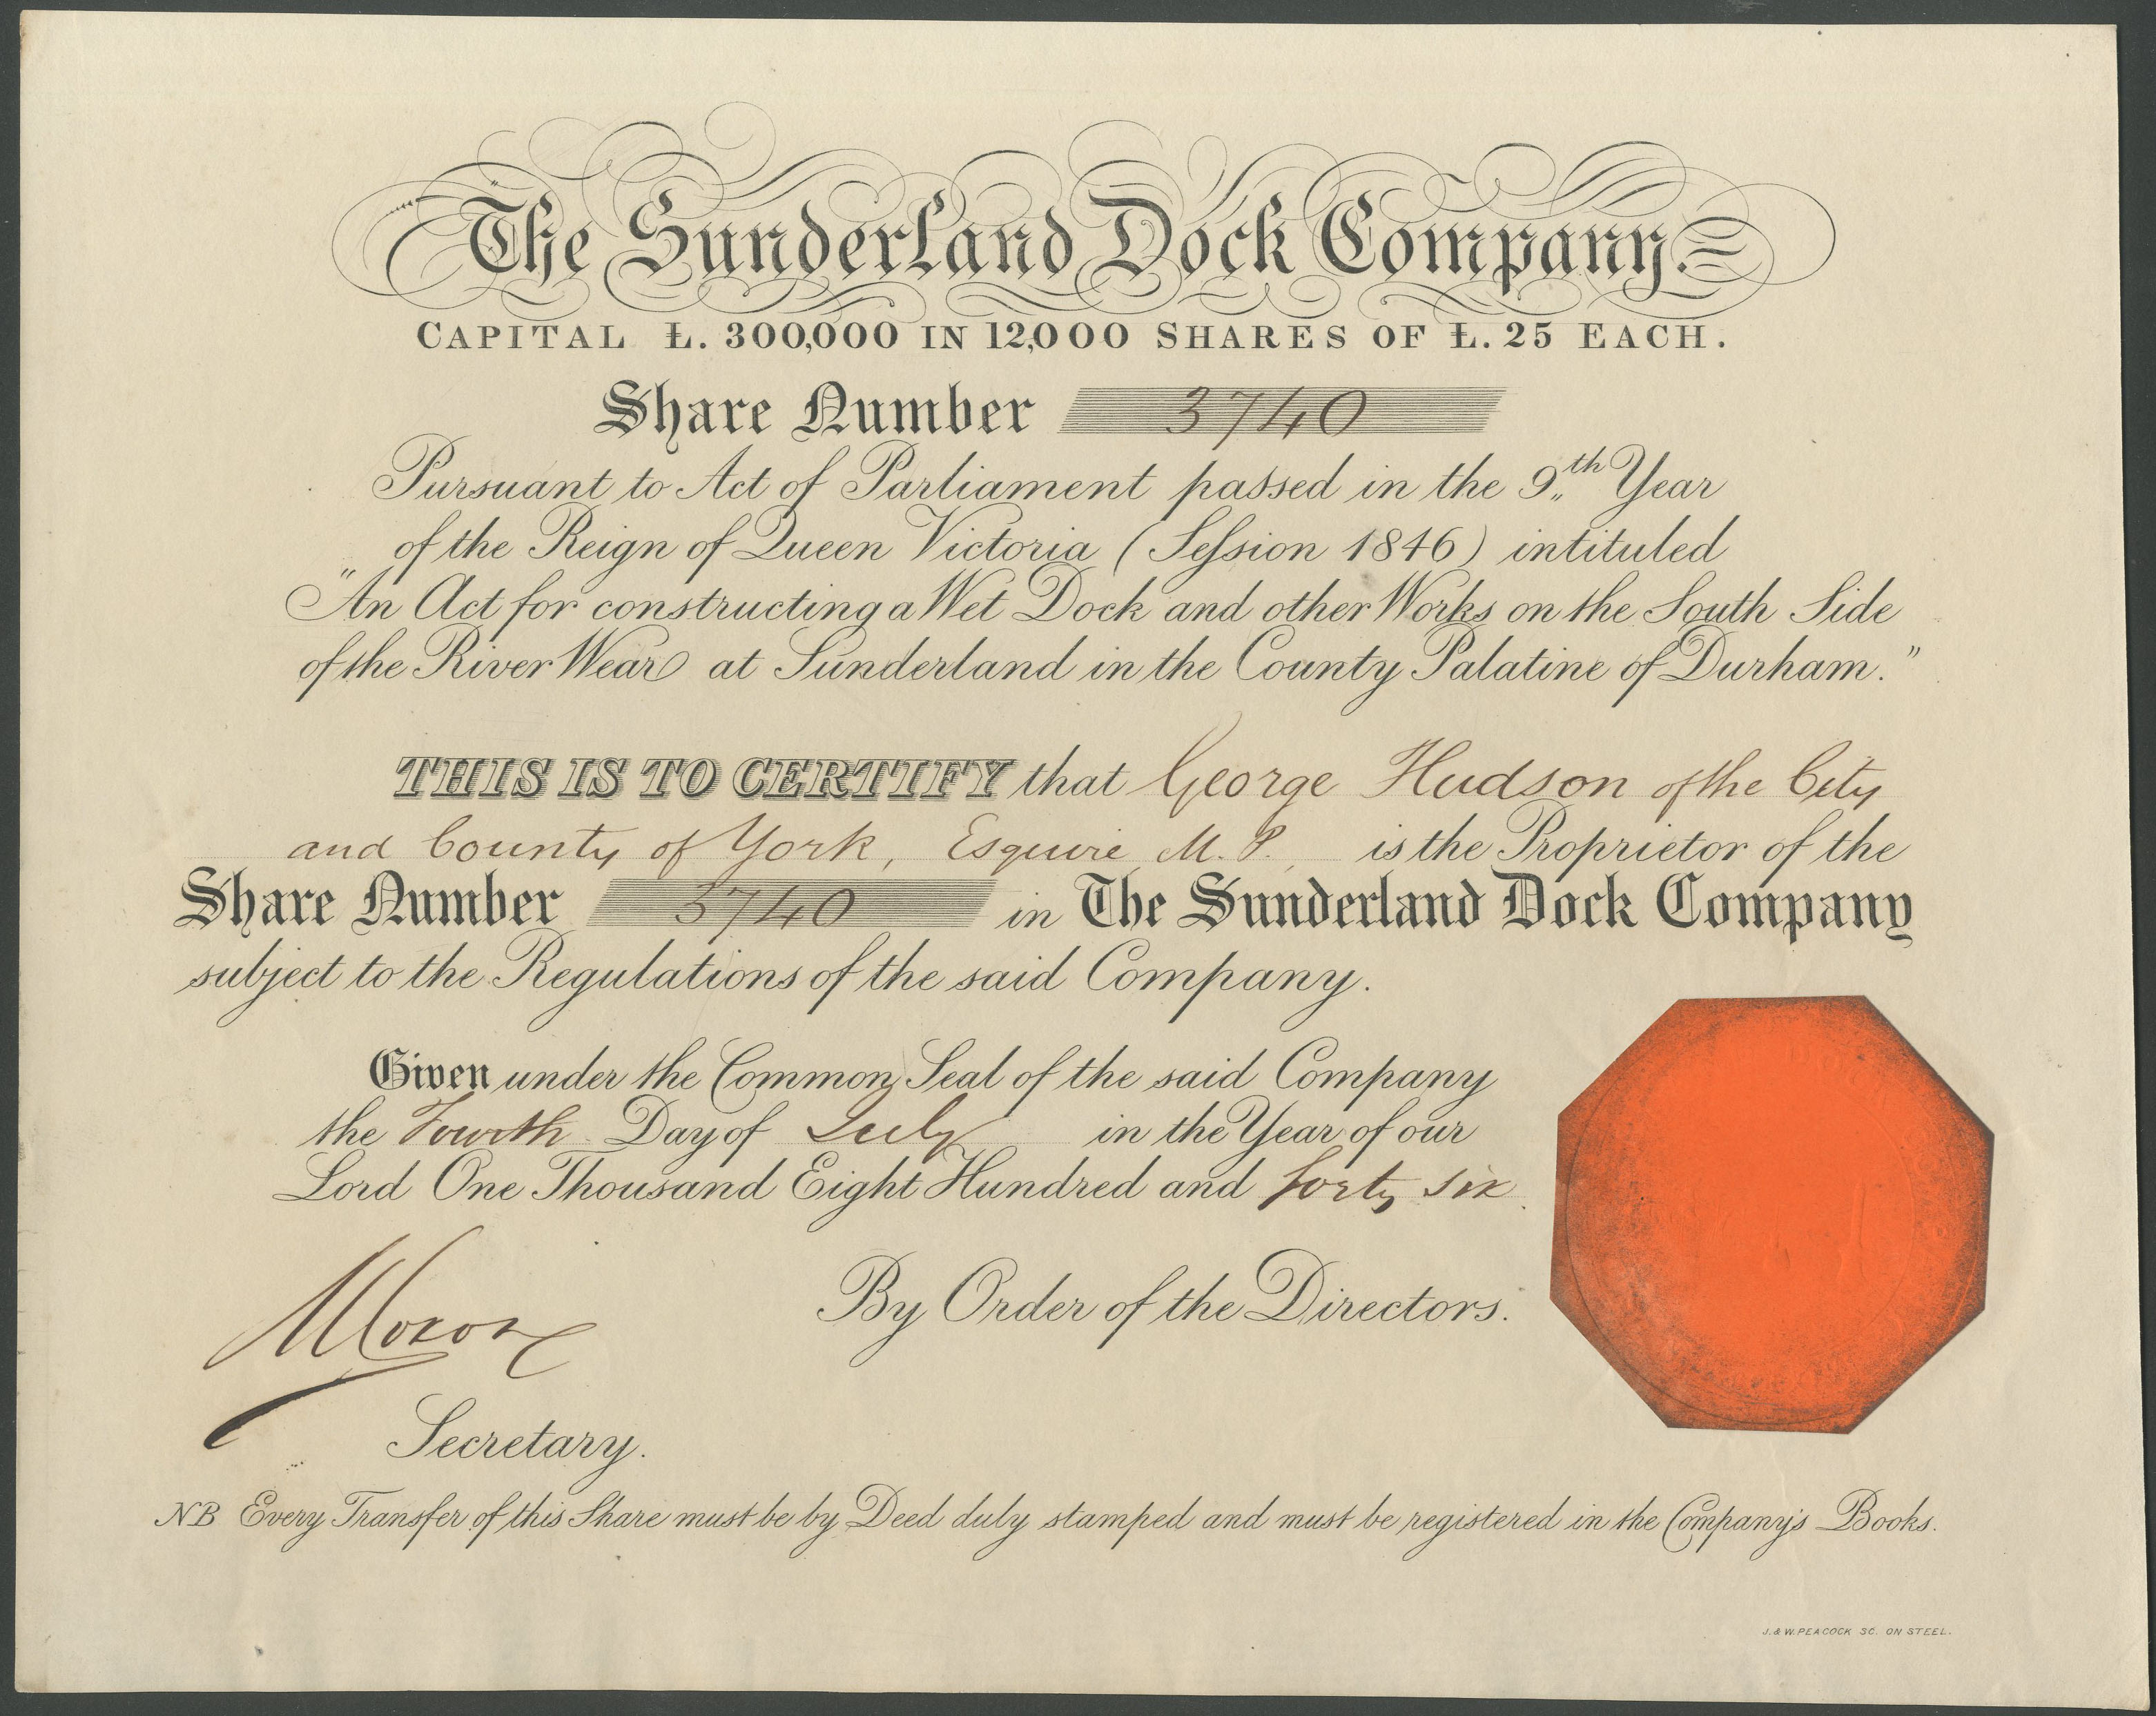 The Sunderland Dock Company.
CAPITAL £. 300,000 IN 12,000 SHARES OF £. 25 EACH.
Share Number 3740
Pursuant to Act of Parliament passed in the 9th Year
of the Reign of Queen Victoria (Session 1846) intituled
"An Act for constructing a Wet Dock and other Works on the South Side
of the River Wear at Sunderland in the County Palatine of Durham."
THIS IS TO CERTIFY that George Hudson of the City
and County of York, Esquire M.P. is the Proprietor of the
Share Number 3740 in The Sunderland Dock Company
subject to the Regulations of the said Company.
Given under the Common Seal of the said Company
the Fourth Day of July in the Year of our
Lord One Thousand Eight Hundred and forty six
By Order of the Directors.
Moxon
Secretary.
NB Every Transfer of this Share must be by Deed duly stamped and must be registered in the Company's Books.
J. & W. PEACOCK SC. ON STEEL.